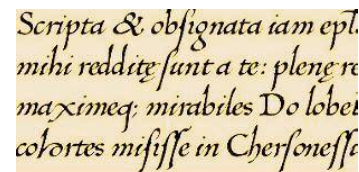 Scripta & obſignata iam epľ
mihi redditę ſunt a te: plenę re
maximeq; mirabiles Do lobel
cohortes miſiſſe in Cherſoneſſo